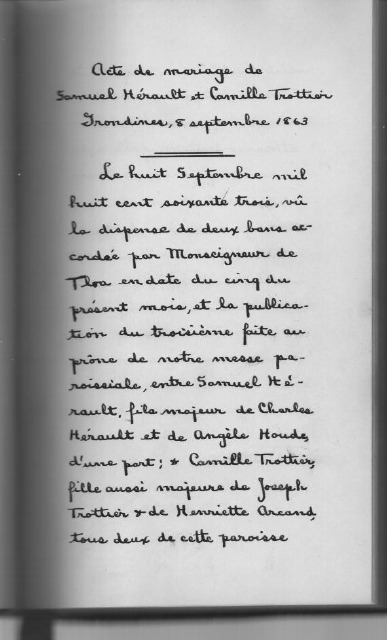 Acte de mariage de
Samuel Hérault et Camille Trottier
Grondines, 8 septembre 1863
Le huit Septembre mil
huit cent soixante trois, vû
la dispense de deux bans ac-
cordée par Monseigneur de
Tloa en date du cinq du
présent mois, et la publica-
tion du troisième faite au
prône de notre messe pa-
roissiale, entre Samuel Hé-
rault, fils majeur de Charles
Hérault et de Angèle Houde,
d'une part; & Camille Trottier,
fille aussi majeure de Joseph
Trottier & de Henriette Arcand,
tous deux de cette paroisse